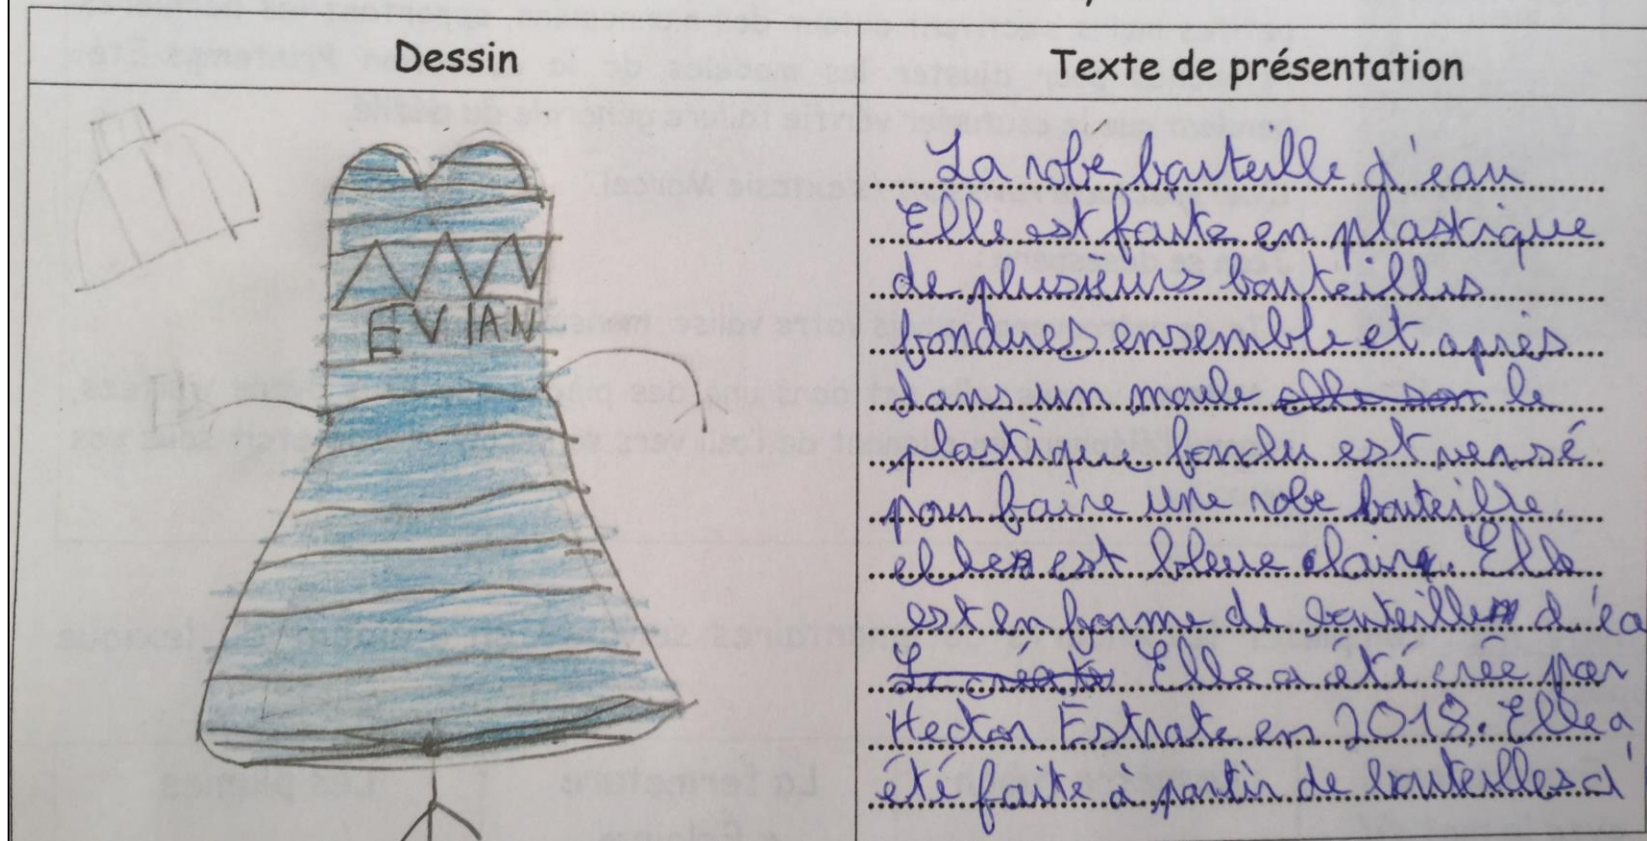 Dessin
Texte de présentation
EVIAN
La robe bouteille d'eau
Elle est faite en plastique
de plusieurs bouteilles
fondues ensemble et après
dans un moule le
plastique fondu est versé
pour faire une robe bouteille.
elle est bleue claire. Elle
est en forme de bouteille d'ea
Elle a été crée par
Hector Estrate en 2018. Elle a
été faite à partir de bouteilles d'